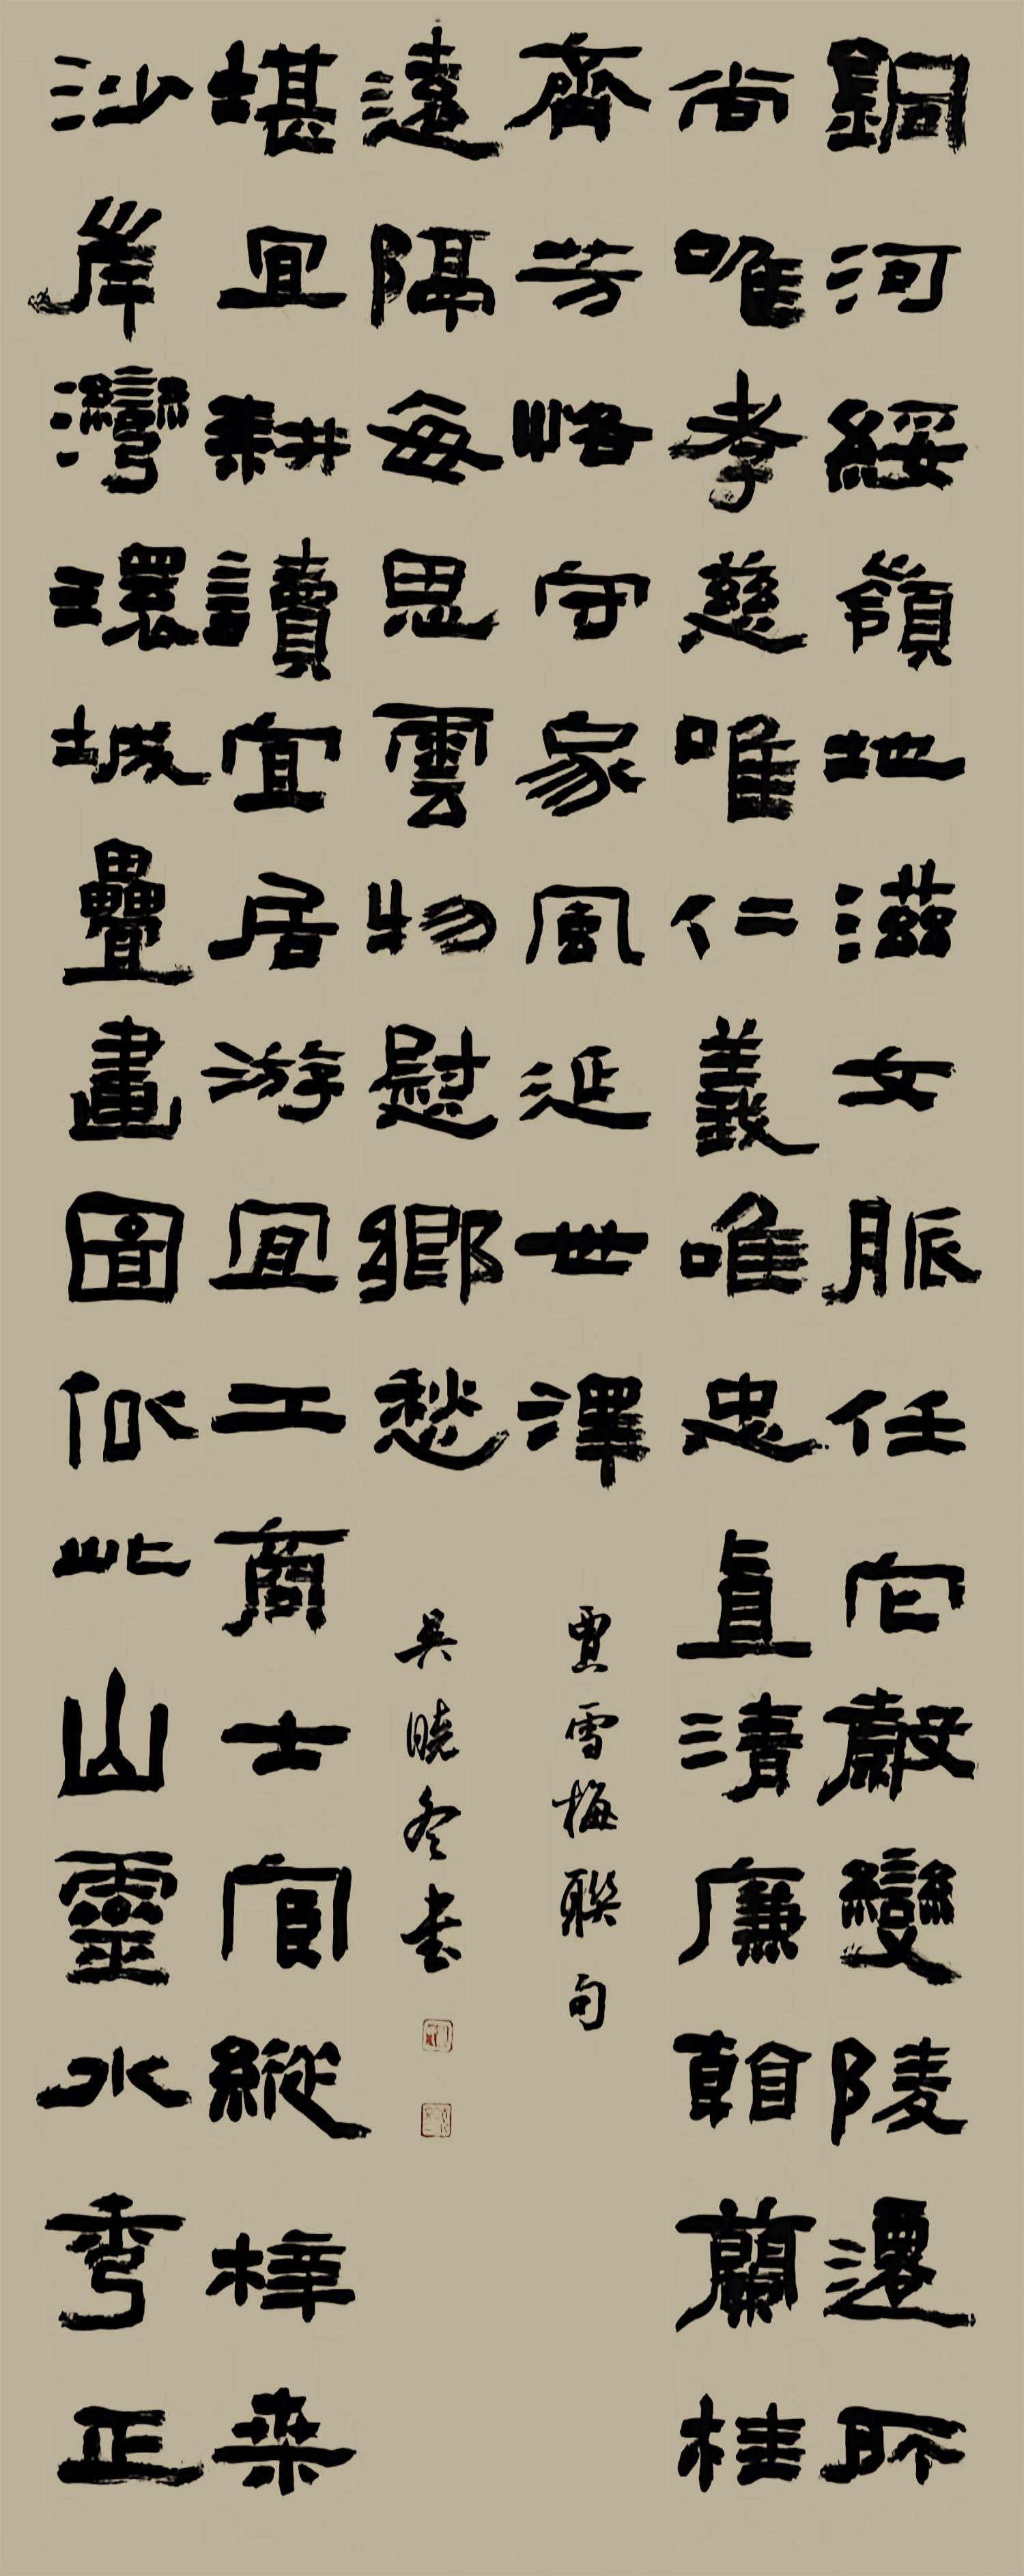 銅河綏嶺地滋文脈任它變陵遷所
尚唯孝慈唯仁義唯忠直清廉蘭桂
齊芳恪守家風延世澤
賈雪梅聯句
沙岸灣環城疊畫圖依此山靈水秀正
堪宜耕讀宜居游宜工商士宦縱梓桑
遠隔每思雲物慰鄉愁
吴曉冬書